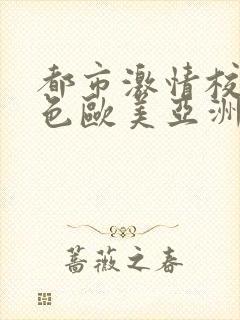 都市激情校
色歐美亞洲
蔷薇之春